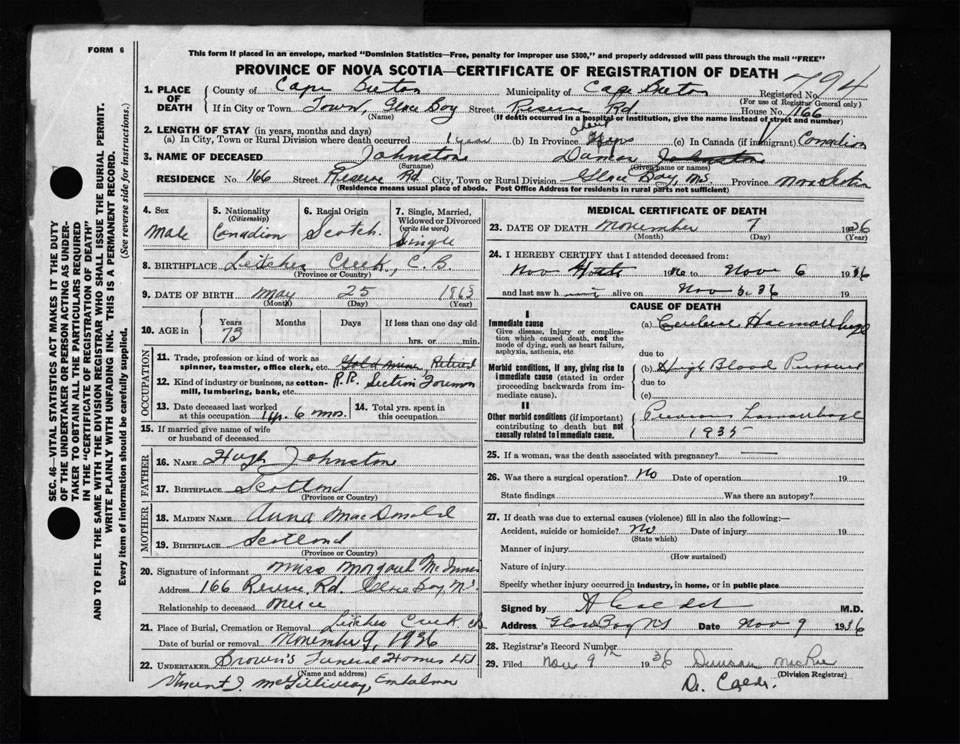 FORM 6
This form if placed in an envelope, marked "Dominion Statistics—Free, penalty for improper use $300," and properly addressed will pass through the mail "FREE"
PROVINCE OF NOVA SCOTIA—CERTIFICATE OF REGISTRATION OF DEATH
794
1. PLACE OF DEATH
County of Cape Breton Municipality of Cape Breton Registered No.
(For use of Registrar General only)
If in City or Town Town, Glace Bay Street Reserve Rd House No. 166
(Name) (If death occurred in a hospital or institution, give the name instead of street and number)
2. LENGTH OF STAY (in years, months and days)
(a) In City, Town or Rural Division where death occurred 1 year (b) In Province (c) In Canada (if immigrant) Canadian
3. NAME OF DECEASED Johnston Johnston
(Surname) (Given name or names)
RESIDENCE No. 166 Street Reserve Rd. City, Town or Rural Division Glace Bay, N.S. Province Nova Scotia
(Residence means usual place of abode. Post Office Address for residents in rural parts not sufficient)
4. Sex Male
5. Nationality (Citizenship) Canadian
6. Racial Origin Scotch.
7. Single, Married, Widowed or Divorced (write the word) Single
8. BIRTHPLACE Leitches Creek, C.B.
(Province or Country)
9. DATE OF BIRTH May 25 1863
(Month) (Day) (Year)
10. AGE in Years 73 Months Days If less than one day old hrs. or min.
OCCUPATION
11. Trade, profession or kind of work as spinner, teamster, office clerk, etc. Gold miner, Retired
12. Kind of industry or business, as cotton-mill, lumbering, bank, etc. R.R. Section Foreman
13. Date deceased last worked at this occupation 1 yr. 6 mos. 14. Total yrs. spent in this occupation
15. If married give name of wife or husband of deceased
FATHER
16. NAME Hugh Johnston
17. BIRTHPLACE Scotland
(Province or Country)
MOTHER
18. MAIDEN NAME Anna MacDonald
19. BIRTHPLACE Scotland
(Province or Country)
20. Signature of informant Miss Margaret McInnis
Address 166 Reserve Rd. Glace Bay N.S.
Relationship to deceased Niece
21. Place of Burial, Cremation or Removal Leitches Creek CB
Date of burial or removal November 9, 1936
22. UNDERTAKER Brown's Funeral Homes Ltd
(Name and address)
Vincent J. McGillivray, Embalmer
MEDICAL CERTIFICATE OF DEATH
23. DATE OF DEATH November 7 1936
(Month) (Day) (Year)
24. I HEREBY CERTIFY that I attended deceased from:
Nov to Nov 6 1936
and last saw h alive on Nov 6. 36 19
CAUSE OF DEATH
I
Immediate cause
Give disease, injury or complication which caused death, not the mode of dying, such as heart failure, asphyxia, asthenia, etc
(a) Cerebral Haemorrhage
due to
Morbid conditions, if any, giving rise to immediate cause (stated in order proceeding backwards from immediate cause).
(b) High Blood Pressure
due to
(c)
II
Other morbid conditions (if important) contributing to death but not causally related to immediate cause.
Previous haemorrhage
1935
25. If a woman, was the death associated with pregnancy? —
26. Was there a surgical operation? No Date of operation 19
State findings Was there an autopsy?
27. If death was due to external causes (violence) fill in also the following:—
Accident, suicide or homicide? No Date of injury 19
(State which)
Manner of injury
(How sustained)
Nature of injury
Specify whether injury occurred in industry, in home, or in public place
Signed by M.D.
Address Glace Bay NS Date Nov 9 1936
28. Registrar's Record Number
29. Filed Nov 9th 1936 Duncan McRae
(Division Registrar)
Dr. Calder.
SEC. 46—VITAL STATISTICS ACT MAKES IT THE DUTY
OF THE UNDERTAKER OR PERSON ACTING AS UNDER-
TAKER TO OBTAIN ALL THE PARTICULARS REQUIRED
IN THE "CERTIFICATE OF REGISTRATION OF DEATH"
AND TO FILE THE SAME WITH THE DIVISION REGISTRAR WHO SHALL ISSUE THE BURIAL PERMIT.
WRITE PLAINLY WITH UNFADING INK. THIS IS A PERMANENT RECORD.
Every item of information should be carefully supplied. (See reverse side for instructions.)